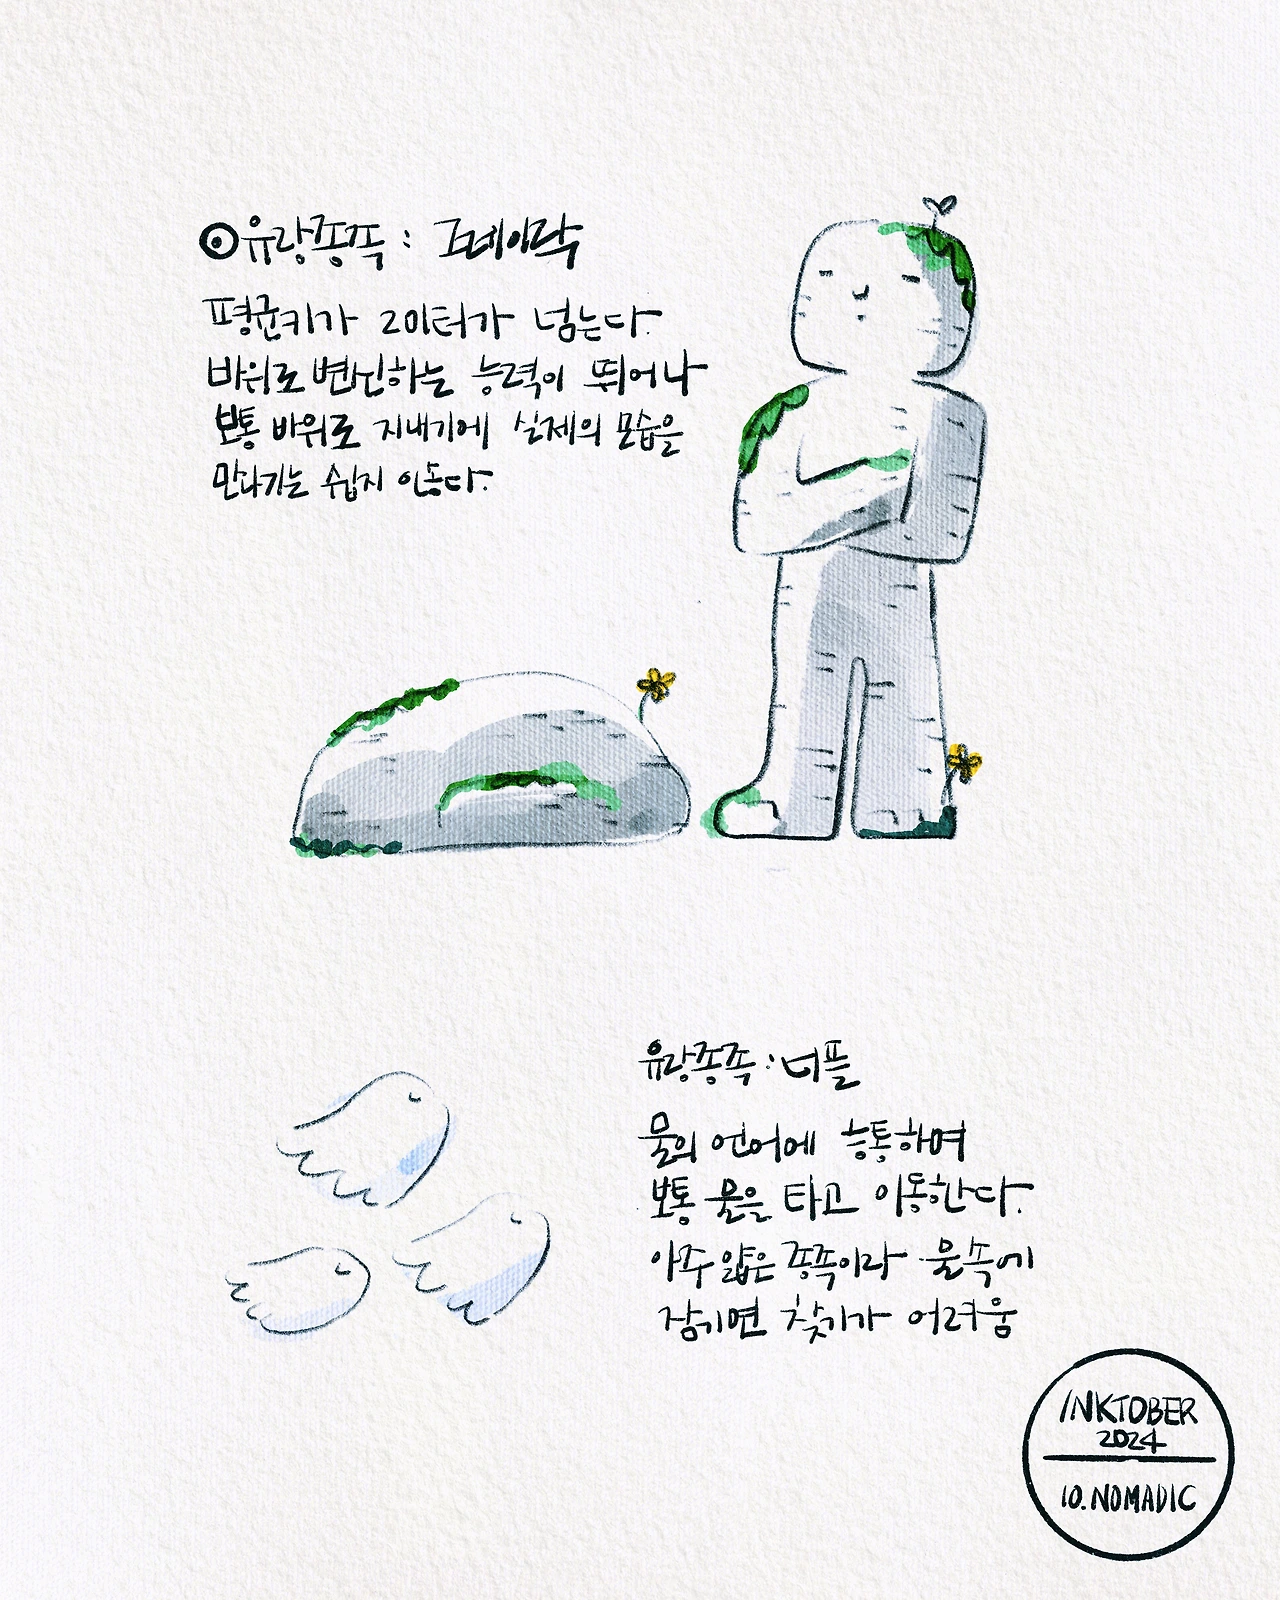 유랑종족 : 크레이락
평균키가 2미터가 넘는다.
바위로 변신하는 능력이 뛰어나
보통 바위로 지내기에 실제의 모습을
만나기는 쉽지 않다.
유랑종족 : 너플
물의 언어에 능통하며
보통 물을 타고 이동한다.
아주 얇은 종족이라 물속에
잠기면 찾기가 어려움
INKTOBER
2024
10. NOMADIC